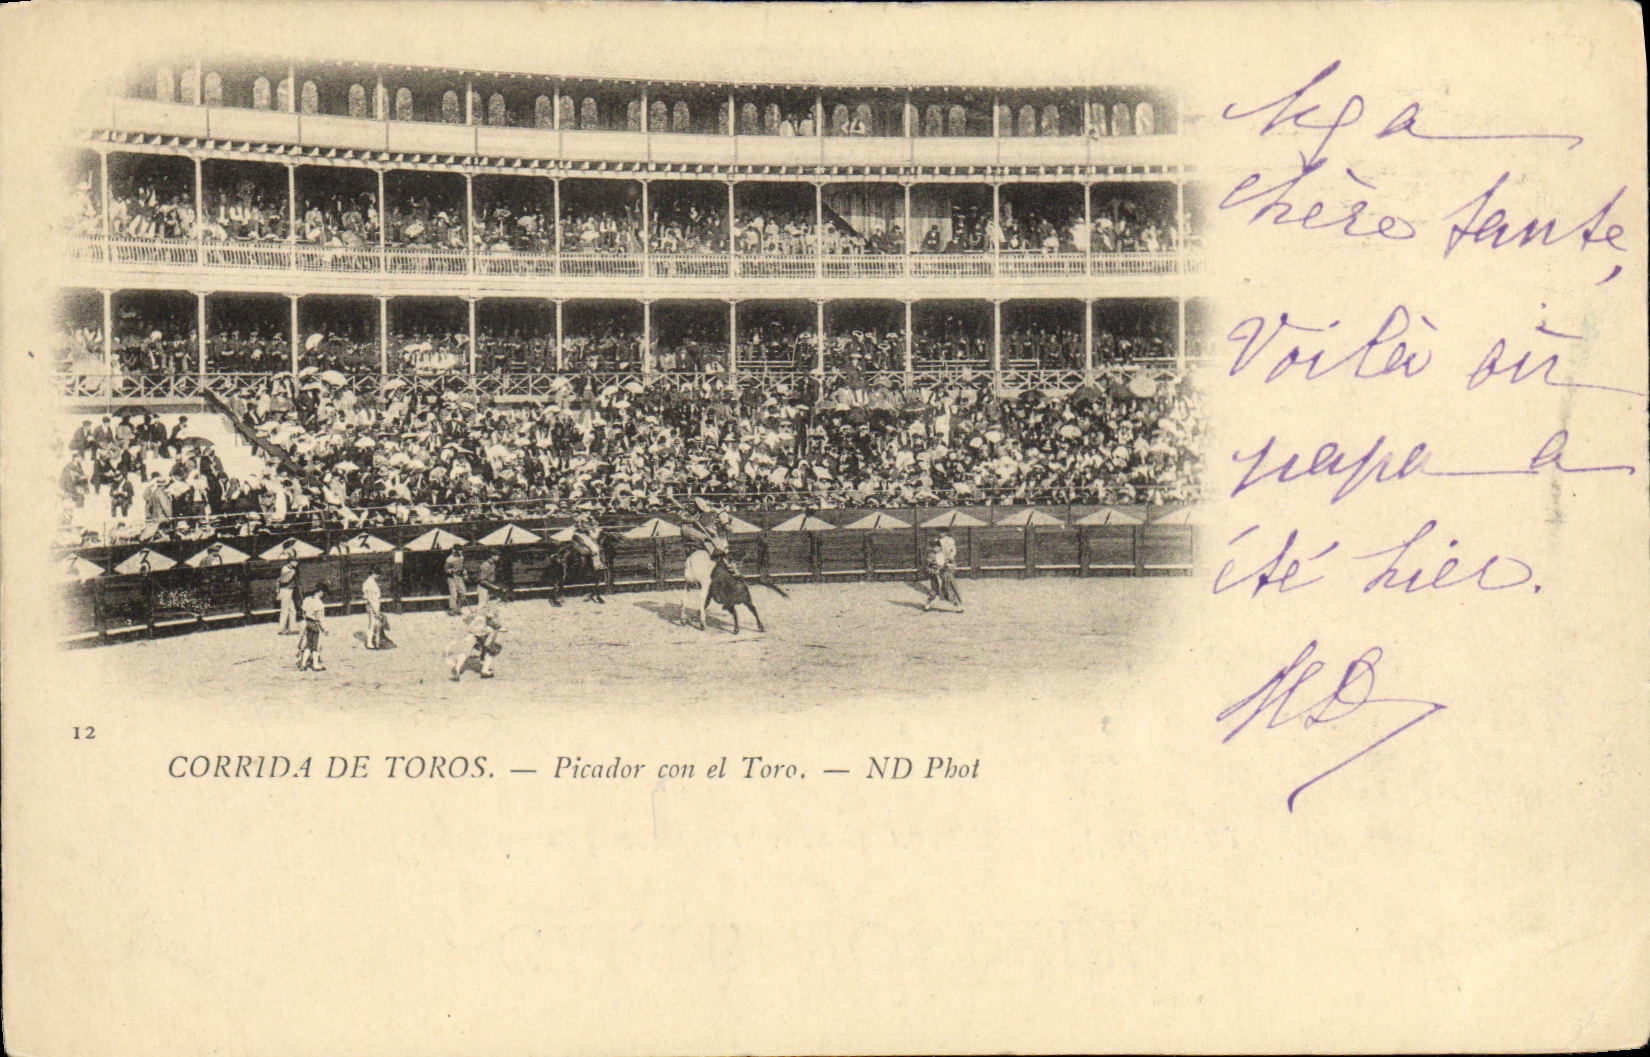 Ma
chère tante,
Voilà où
papa a
été hier.
MD
3
2
2
1
1
1
1
1
1
1
1
12
CORRIDA DE TOROS. — Picador con el Toro. — ND Phot